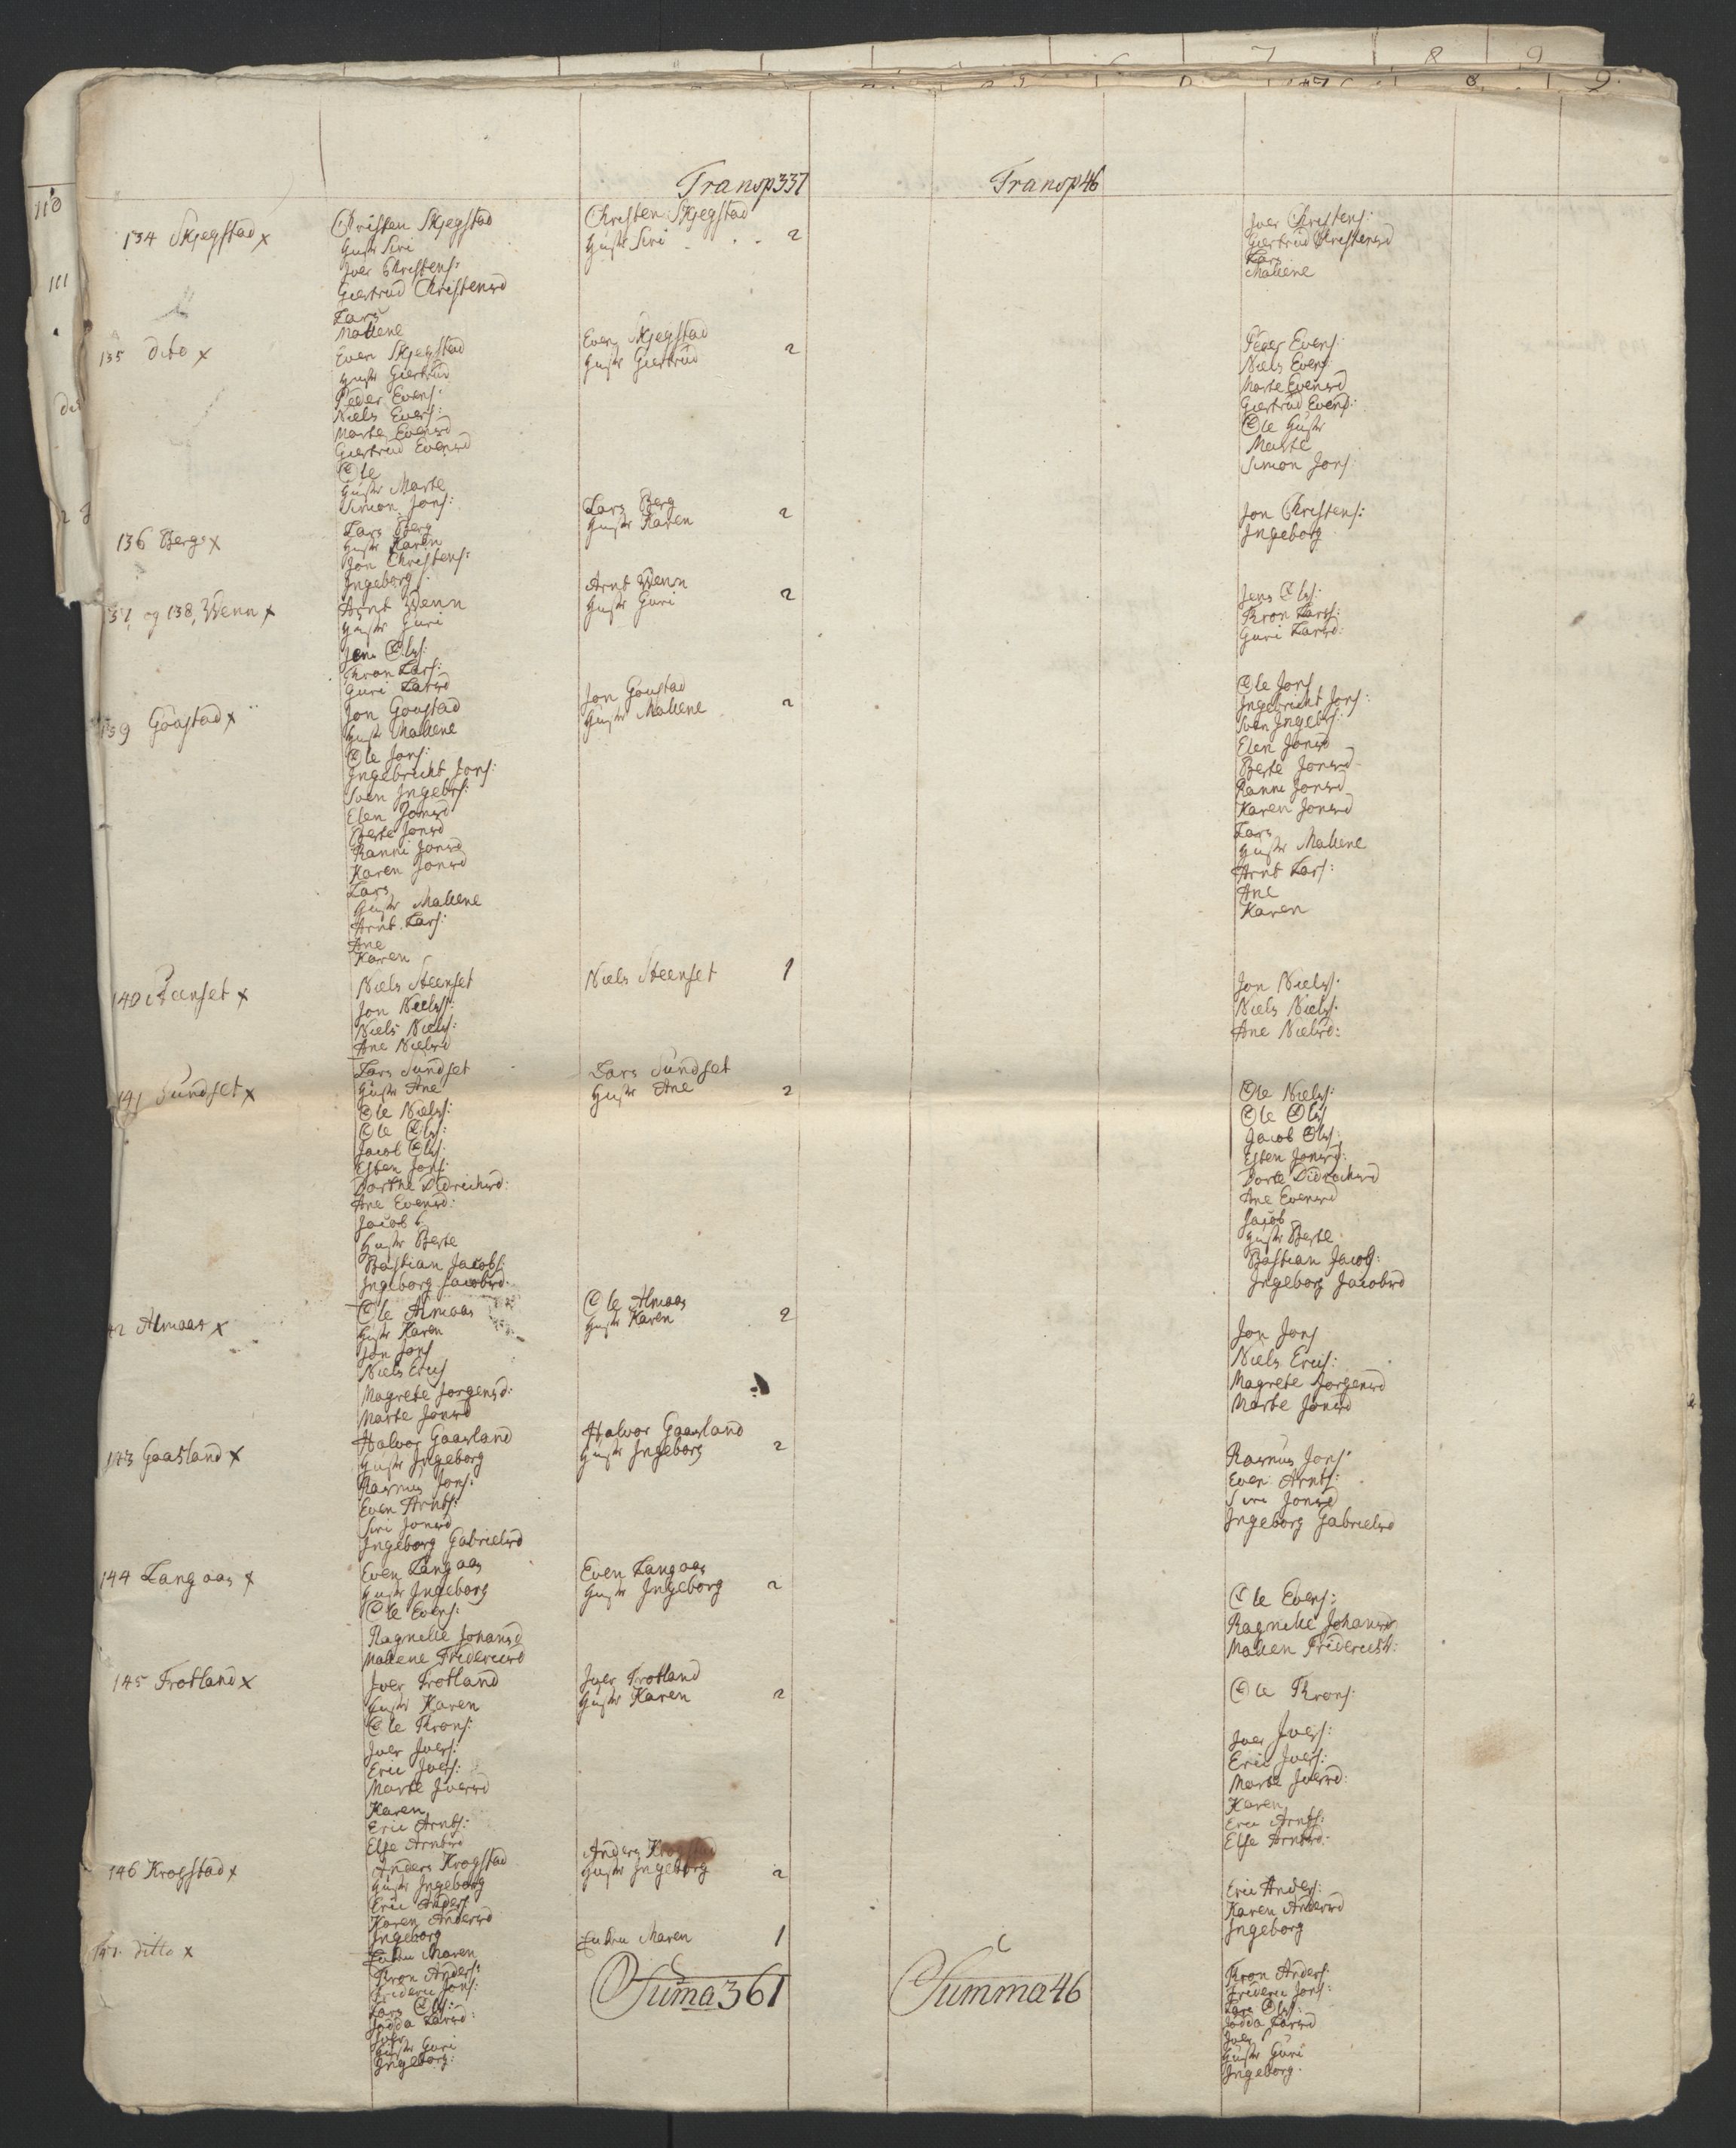 6 7 8 9
8 9
110
111
Transp 337 Transp 46
134 Skjegstad x
Christen Skjegstad
Hustr Siri
Iver Christens:
Giertrud Christensd
Lars
Mallene
Christen Skjegstad
Hustr Siri . . . 2
Iver Christens:
Giertrud Christensd
Lars
Mallene
135 dito x
Even Skjegstad
Hustr Giertrud
Peder Evens:
Niels Evens:
Marte Evensd
Giertrud Evensd
Ole
Hustr Marte
Simon Jons:
Even Skjegstad
Hustr Giertrud 2
Peder Evens:
Niels Evens:
Marte Evensd
Giertrud Evensd:
Ole Hustr
Marte
Simon Jons
136 Berg x
Lars Berg
Hustr Karen
Jon Christens:
Ingeborg
Lars Berg
Hustr Karen 2
Jon Christens:
Ingeborg
137 og 138, Wenn x
Arnt Wenn
Hustr Guri
Jens Ols:
Thron Lars:
Guri Larsd
Arnt Wenn
Hustr Guri 2
Jens Ols:
Thron Lars:
Guri Larsd:
139 Goustad x
Jon Goustad
Hustr Mallene
Ole Jons:
Ingebricht Jons:
Sven Ingebrs:
Elen Jonsd
Berte Jonsd
Ranni Jonsd
Karen Jonsd
Lars
Hustr Mallene
Arnt Lars:
Ane
Karen
Jon Goustad
Hustr Mallene 2
Ole Jons
Ingebricht Jons:
Sven Ingebrs:
Elen Jonsd
Berte Jonsd
Ranni Jonsd
Karen Jonsd
Lars
Hustr Mallene
Arnt Lars:
Ane
Karen
140 Steenset x
Niels Steenset
Jon Nielss:
Niels Niels:
Ane Nielsd
Niels Steenset 1
Jon Niels:
Niels Niels:
Ane Nielsd:
141 Sundset x
Lars Sundset
Hustr Ane
Ole Niels:
Ole Ols:
Jacob Ols:
Esten Jons:
Dorthe Didrichsd:
Ane Evensd:
Jacob
Hustr Berte
Bastian Jacobs:
Ingeborg Jacobsd:
Lars Sundset
Hustr Ane 2
Ole Niels:
Ole Ols
Jacob Ols:
Esten Jonsd:
Dorte Didrichsd
Ane Evensd
Jacob
Hustr Berte
Bastian Jacobs:
Ingeborg Jacobsd
42 Almaas x
Ole Almaas
Hustr Karen
Jon Jons
Niels Erics
Magrete Jorgensd:
Marte Jonsd
Ole Almaas
Hustr Karen 2
Jon Jons
Niels Erics:
Magrete Jorgensd
Marte Jonsd
143 Gaasland x
Halvor Gaasland
Hustr Ingeborg
Rasmus Jons:
Even Arnts:
Siri Jonsd
Ingeborg Gabrielsd
Halvor Gaasland
Hustr Ingeborg 2
Rasmus Jons:
Even Arnts:
Siri Jonsd
Ingeborg Gabrielsd
144 Langaas x
Even Langaas
Hustr Ingeborg
Ole Evens:
Ragnille Johansd
Mallene Fridericsd
Even Langaas
Hustr Ingeborg 2
Ole Evens:
Ragnille Johansd
Mallen Fridericsd:
145 Trotland x
Iver Trotland
Hustr Karen
Ole Throns:
Iver Ivers:
Eric Ivers:
Marte Iversd
Karen
Eric Arnts:
Else Arntsd
Iver Trotland
Hustr Karen 2
Ole Throns:
Iver Ivers:
Eric Ivers:
Marte Iversd:
Karen
Eric Arnts:
Else Arntsd:
146 Krogstad x
Anders Krogstad
Hustr Ingeborg
Eric Anders
Karen Andersd
Ingeborg
Anders Krogstad
Hustr Ingeborg 2
Eric Anders:
Karen Andersd
Ingeborg
147. ditto x
Enken Maren
Thron Anders:
Frideric Jons:
Lars Ols:
Jodda Larsd:
Iver
Hustr Guri
Ingeborg:
Enken Maren 1
Thron Anders:
Frideric Jons:
Lars Ols:
Jodda Larsd
Iver
Hustr Guri
Ingeborg.
Suma 361 Summa 46